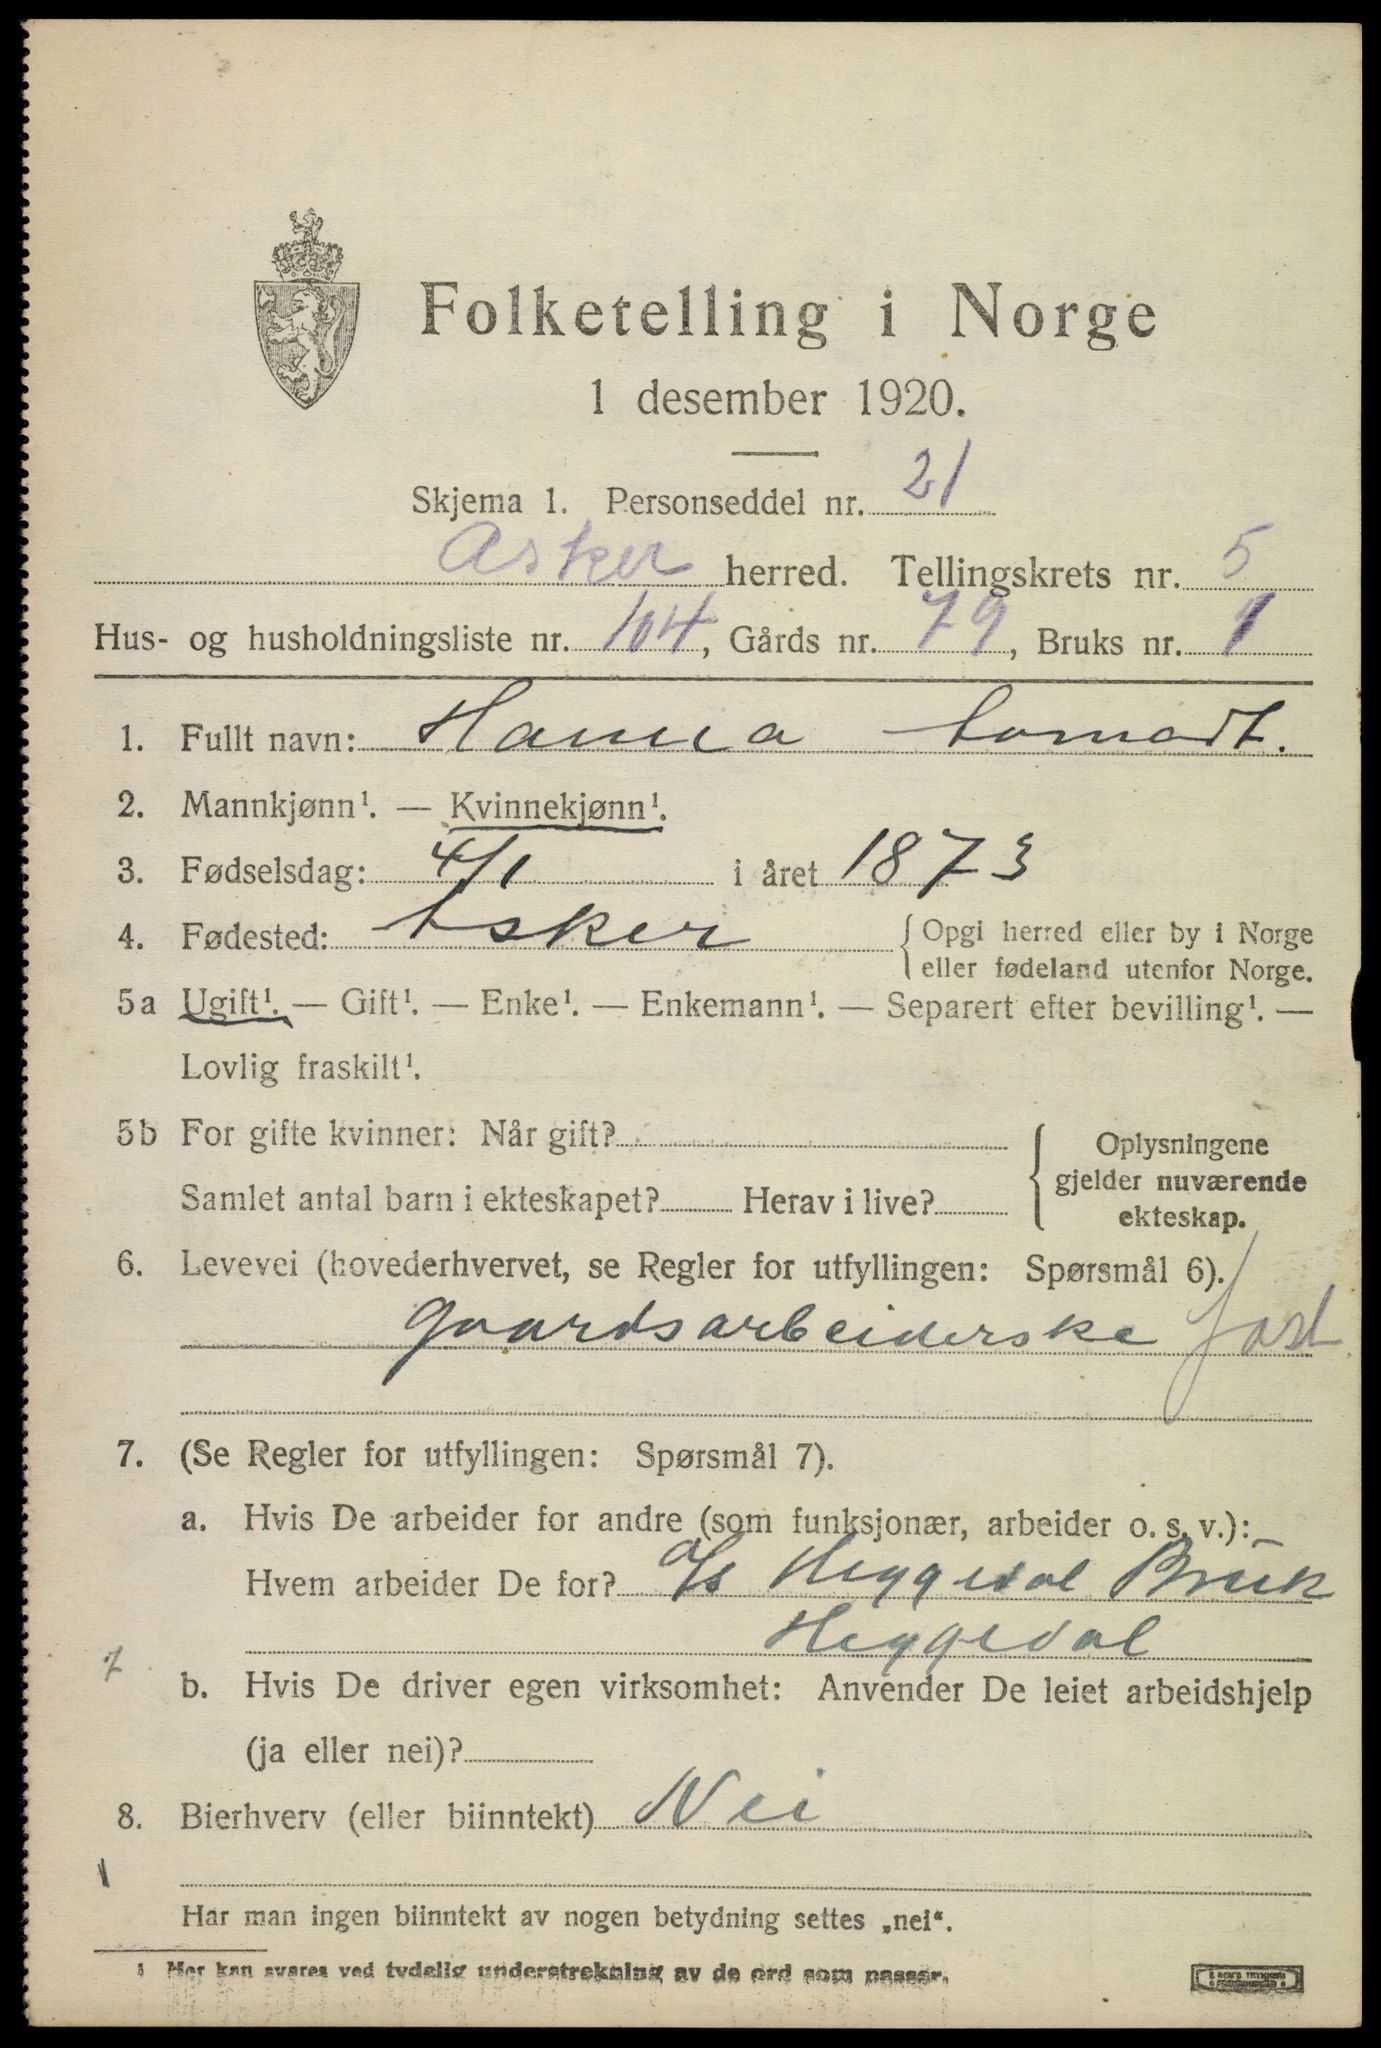 Folketelling i Norge
1 desember 1920.
Skjema 1. Personseddel nr. 21
Asker herred. Tellingskrets nr. 5
Hus- og husholdningsliste nr. 104, Gårds nr. 79, Bruks nr. 1
1. Fullt navn: Hanna
2. Mannkjønn¹. — Kvinnekjønn¹.
3. Fødselsdag: 4/1 i året 1873
4. Fødested: Asker { Opgi herred eller by i Norge
eller fødeland utenfor Norge.
5a Ugift¹. — Gift¹. — Enke¹. — Enkemann¹. — Separert efter bevilling¹. —
Lovlig fraskilt¹.
5b For gifte kvinner: Når gift?
Samlet antal barn i ekteskapet? Herav i live?
{ Oplysningene
gjelder nuværende
ekteskap.
6. Levevei (hovederhvervet, se Regler for utfyllingen: Spørsmål 6).
gaardsarbeiderske fast
7. (Se Regler for utfyllingen: Spørsmål 7).
a. Hvis De arbeider for andre (som funksjonær, arbeider o. s. v.):
Hvem arbeider De for? A/s Heggedal Bruk
Heggedal
7
b. Hvis De driver egen virksomhet: Anvender De leiet arbeidshjelp
(ja eller nei)?
8. Bierhverv (eller biinntekt) Nei
1
Har man ingen biinntekt av nogen betydning settes „nei“.
¹ Her kan svares ved tydelig understrekning av de ord som passer.